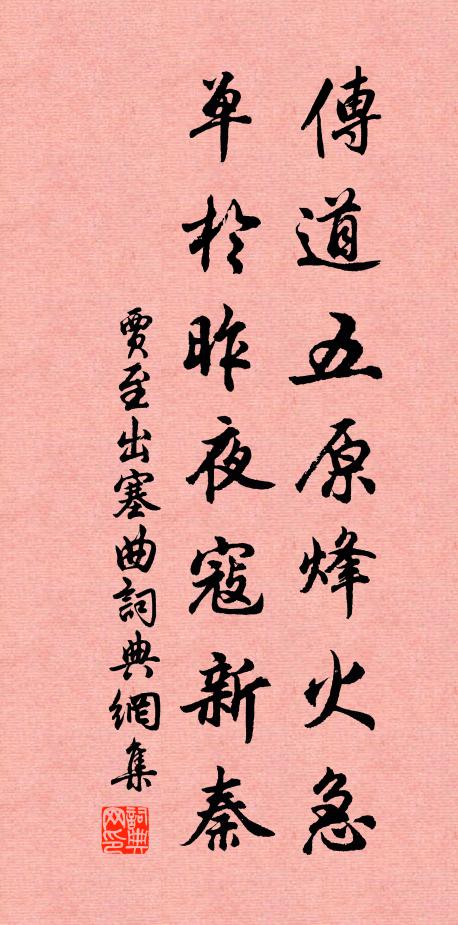 傳道五原烽火急
单於昨夜寇新秦
賈至出塞曲詞典網集
詞典网印